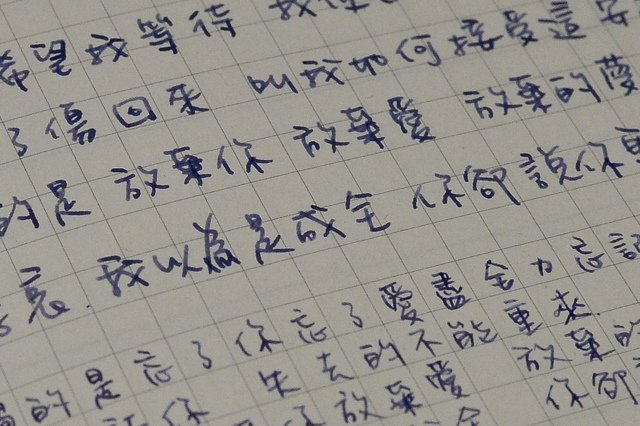 希望我等待
了傷回來 叫我如何接受這安
的是 放棄你 放棄愛 放棄的夢
哀 我以為是成全 你卻說你更
的是 忘了你 忘了愛 盡全力忘記
你 失去的不能重來
放棄愛 放棄的
你卻